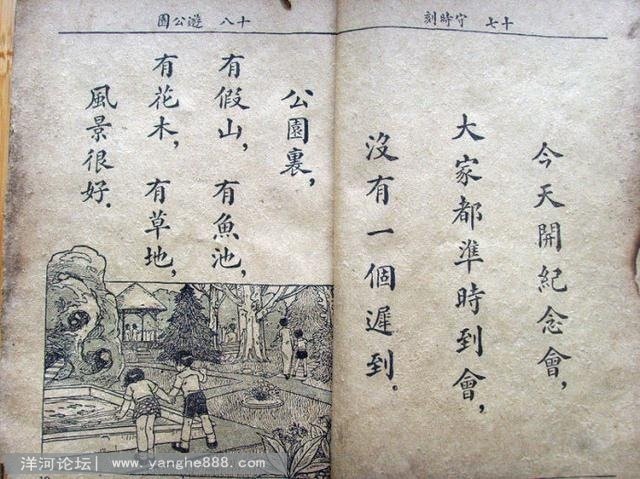 十七 守時刻
今天開紀念會，
大家都準時到會，
沒有一個遲到。
十八 遊公園
公園裏，
有假山，有魚池，
有花木，有草地，
風景很好．
洋河论坛| www.yanghe888.com